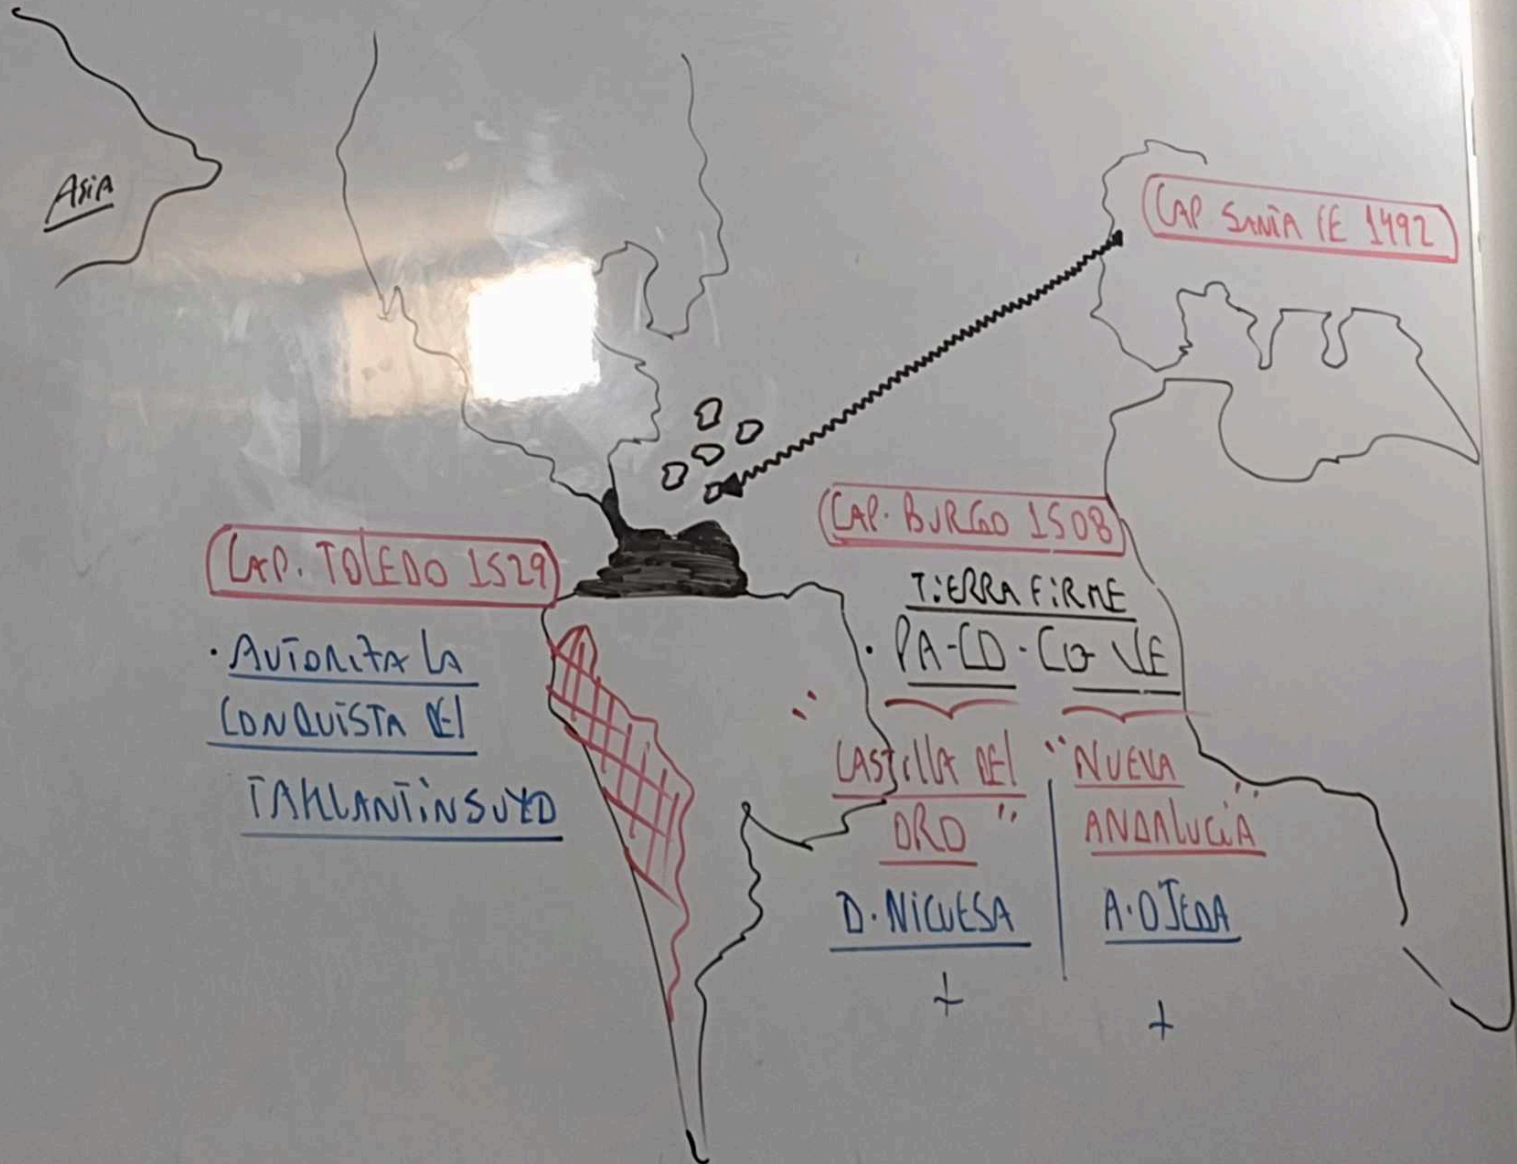 Asia
CAP SANTA FE 1492
CAP. TOLEDO 1529
· AUTORIZA LA
CONQUISTA DEL
TAHUANTINSUYO
CAP. BURGO 1508
TIERRA FIRME
· PA-CO-CO-VE
"CASTILLA DEL
ORO"
D. NICUESA
+
"NUEVA
ANDALUCIA"
A. OJEDA
+